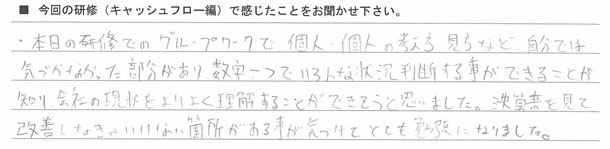 ■ 今回の研修（キャッシュフロー編）で感じたことをお聞かせ下さい。
・本日の研修でのグループワークで、個人・個人の考え方 見方など、自分では
気づかなかった部分があり、数字一つでいろんな状況判断する事ができることが
知り、会社の現状をよりよく理解することができそうと思いました。決算書を見て
改善しなきゃいけない箇所がある事が気づけてとても勉強になりました。